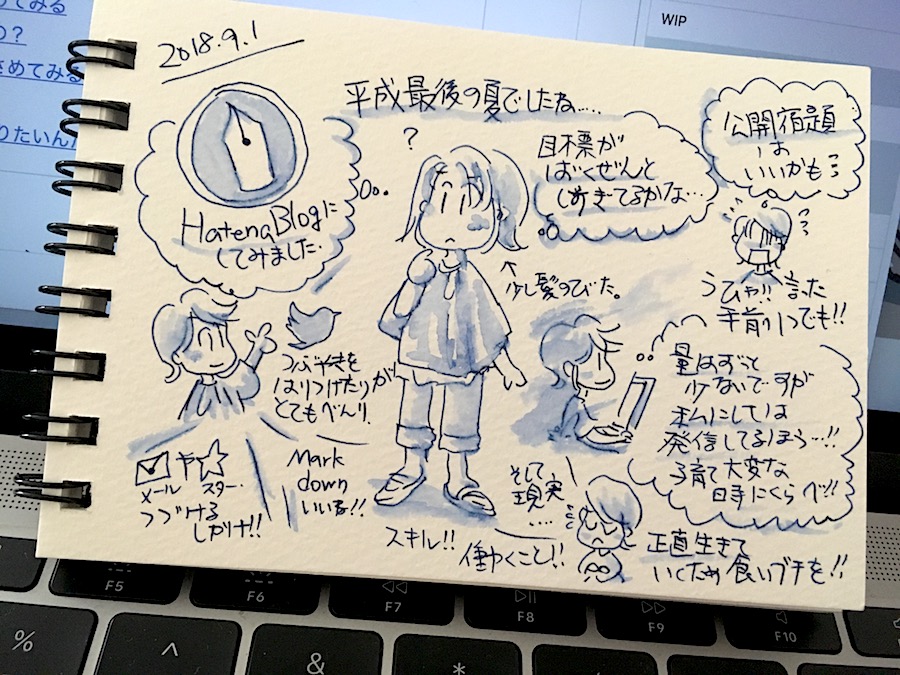 2018.9.1
平成最後の夏でしたね……
HatenaBlogに
してみました
?
目標が
ばくぜんと
しすぎてるかな…
公開宿題
は
いいかも…
少し髪のびた。
うひゃ!! 言った
手前いつでも!!
つぶやきを
はりつけたりが
とてもべんり
メール や スター
つづける
しかけ!!
Mark
down
いいな!!
量はずっと
少ないですが
私にしては
発信してるほう…!!
子育て大変な
日々にくらべ!!
そして、
現実
....
スキル!!
働くこと!!
正直生きて
いくため食いブチを!!
WIP
てみる
の?
とめてみる
りたいん
F5
F6
F7
F8
F9
F10
%
^
&
*